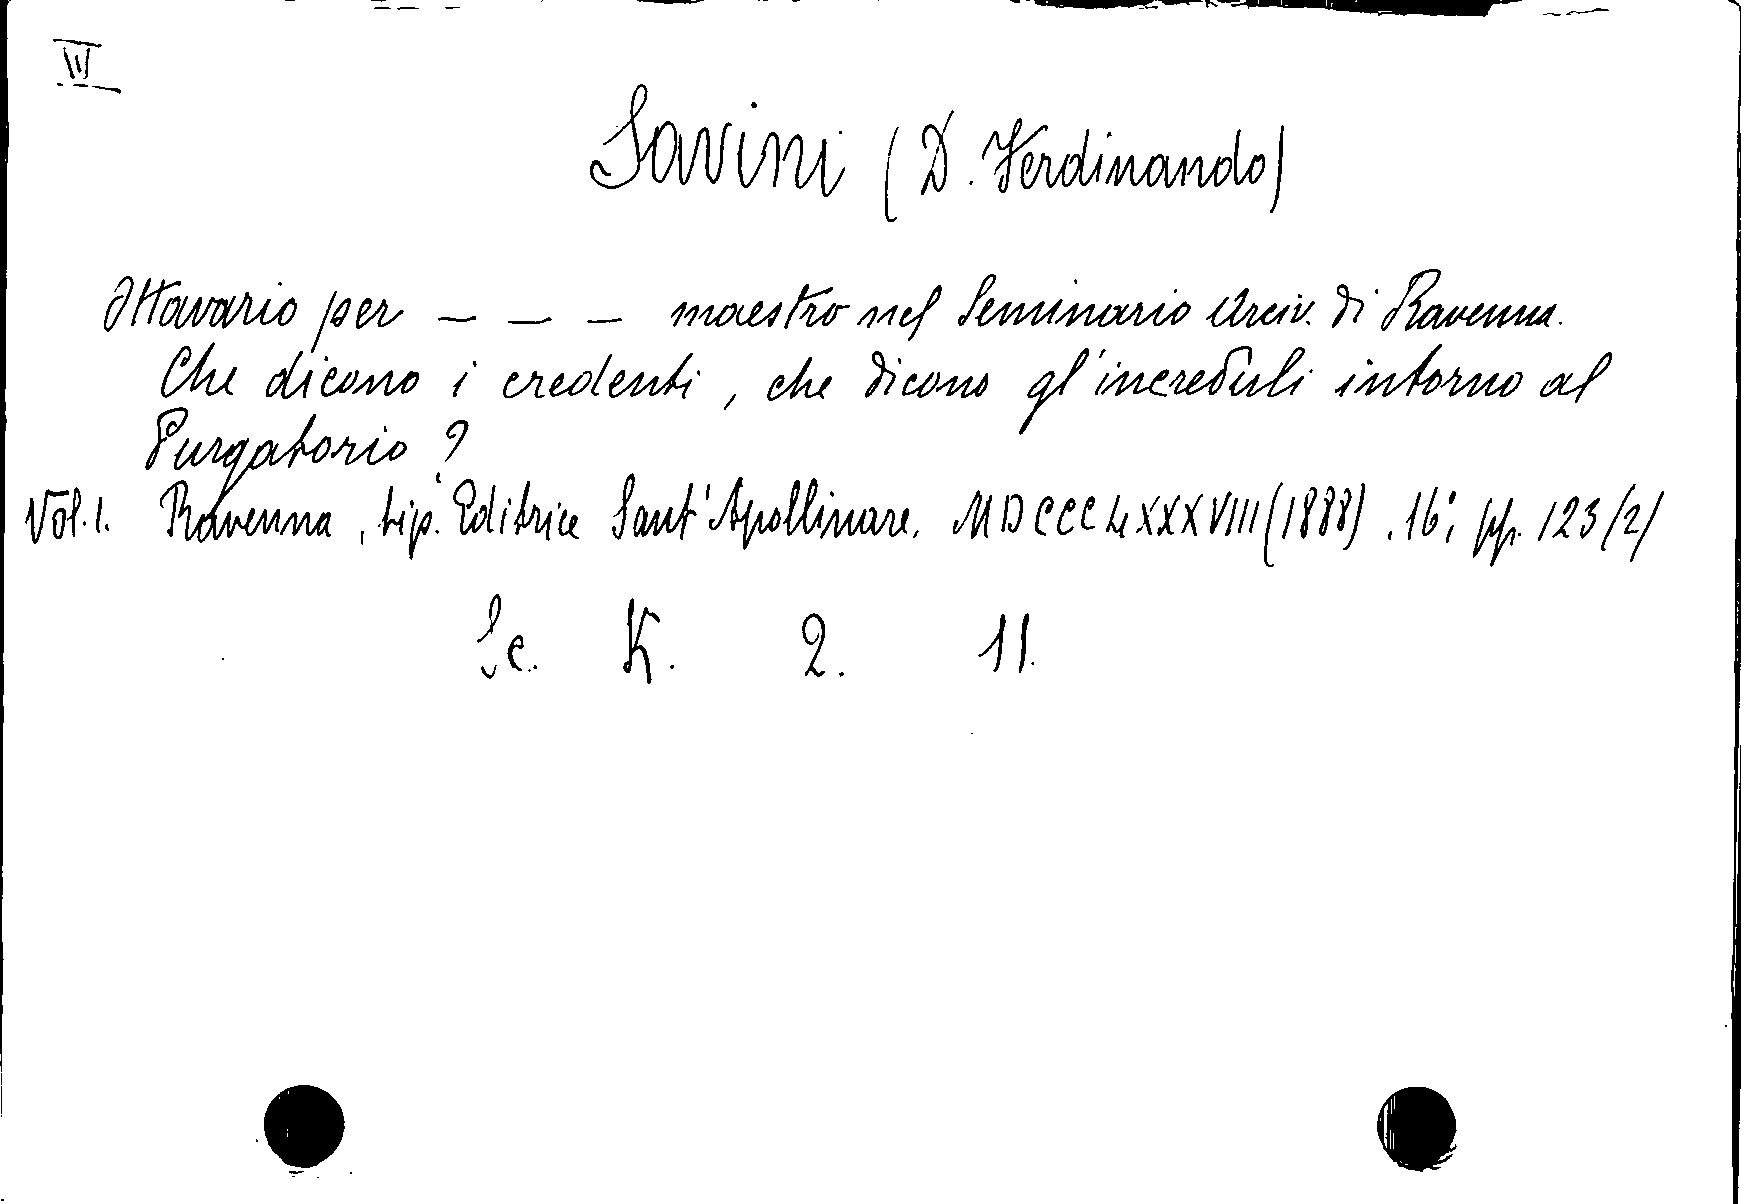 III
Savini (D. Ferdinando)
Ottavario per _ _ _ maestro nel Seminario Arciv. di Ravenna.
Che dicono i credenti, che dicono gl'increduli intorno al
Purgatorio?
Vol. 1. Ravenna, tip. Editrice Sant'Apollinare. MDCCCLXXXVIII (1888). 16°; pp. 123/2/
Sc. K. 2. 11.